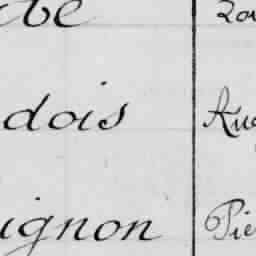 be Lou
dois Aug
ignon Pie